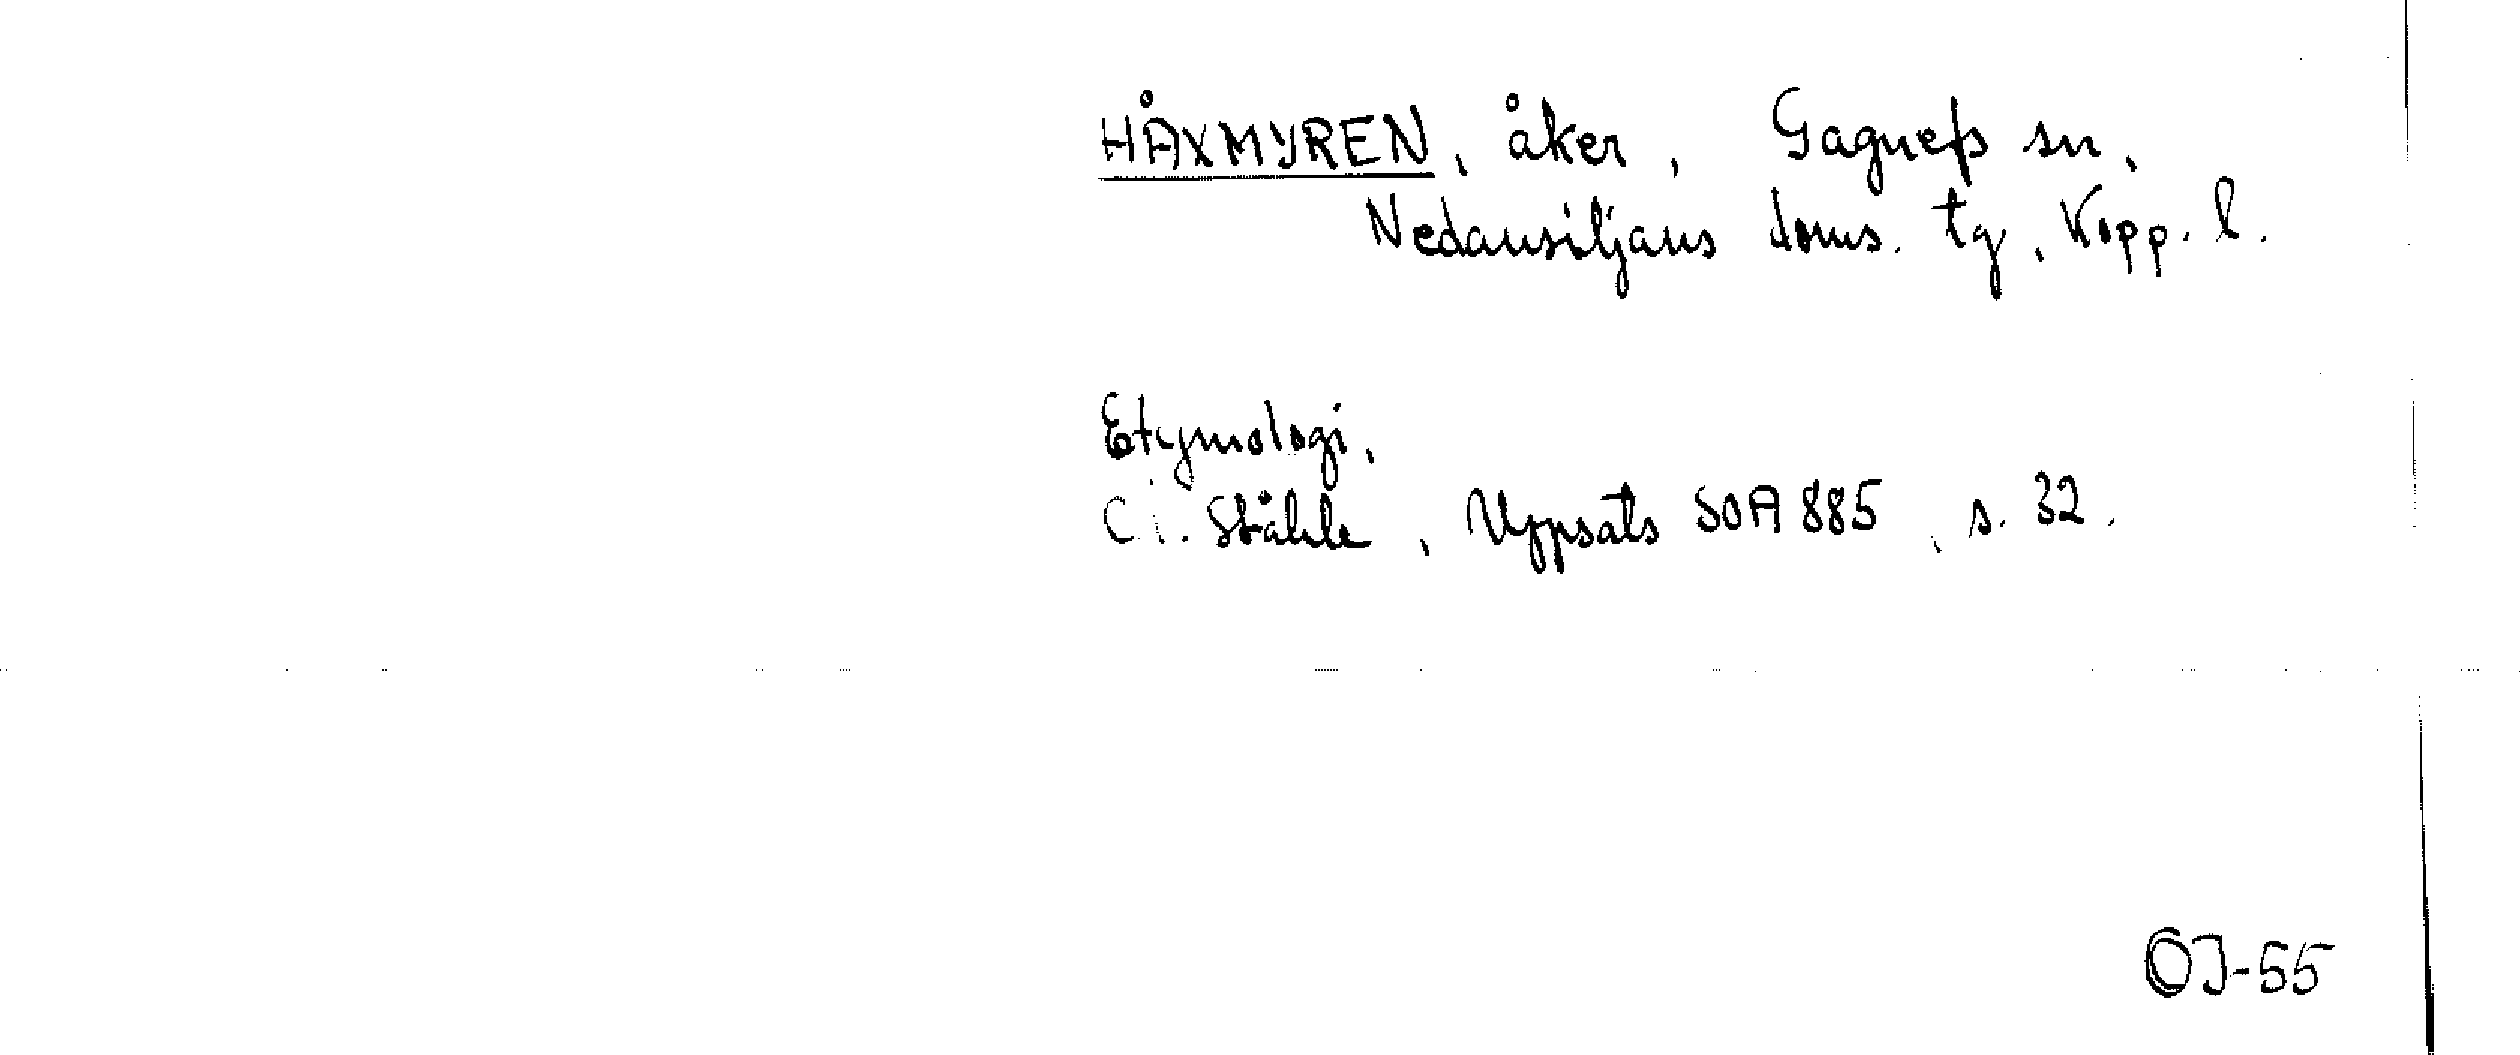 HÅXMYREN, åker, Gagnefs sn,
Nedansiljans doms. tg, Kopp. l.
Etymologi,
C.I. Ståhle, Uppsats SOA 885, s. 32.
OJ-55